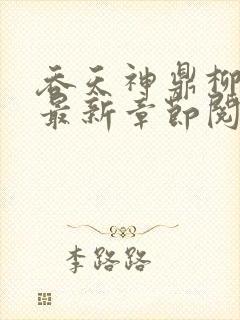 吞天神鼎柳
最新章节阅
李路路